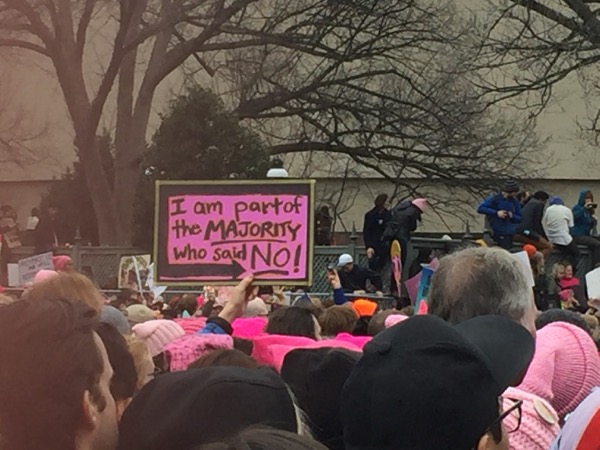 I am part of
the MAJORITY
who said NO!